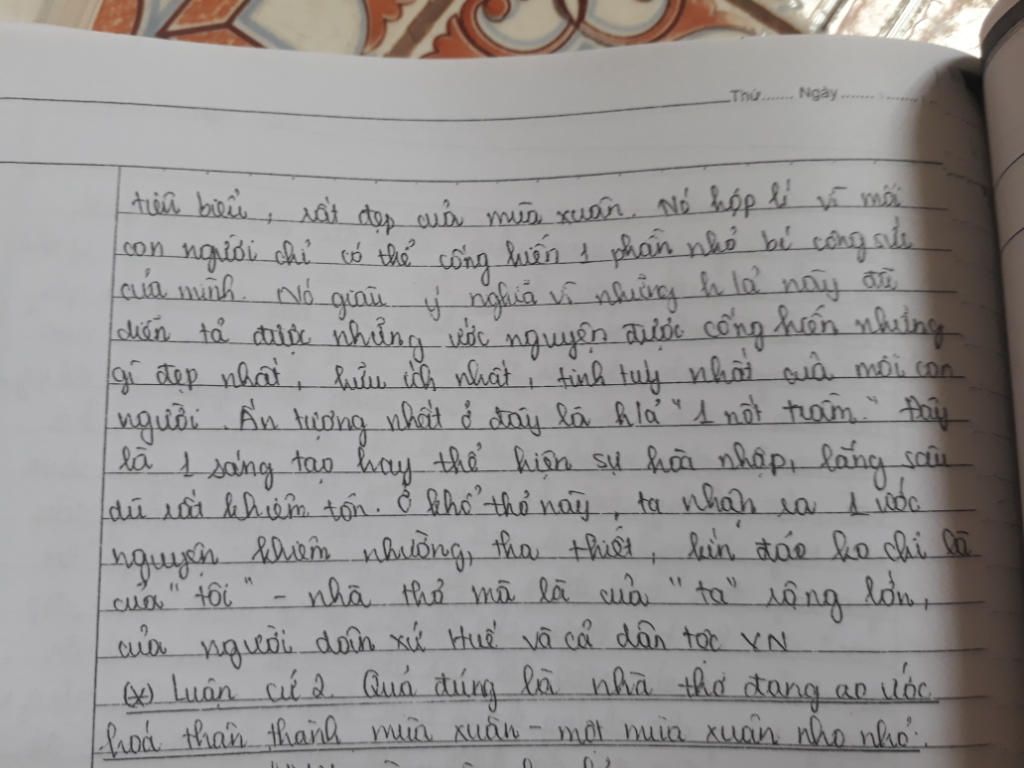 Thứ....... Ngày..............
tiêu biểu, rất đẹp của mùa xuân. Nó hợp lí vì mỗi
con người chỉ có thể cống hiến 1 phần nhỏ bé công sức
của mình. Nó giàu ý nghĩa vì những h/ả này đã
diễn tả được những ước nguyện được cống hiến những
gì đẹp nhất, hữu ích nhất, tinh tuý nhất của mỗi con
người. Ấn tượng nhất ở đây là h/ả "1 nốt trầm." Đây
là 1 sáng tạo hay thể hiện sự hoà nhập, lắng sâu
dù rất khiêm tốn. Ở khổ thơ này, ta nhận ra 1 ước
nguyện khiêm nhường, tha thiết, kín đáo ko chỉ là
của "tôi" - nhà thơ mà là của "ta" rộng lớn,
của người dân xứ Huế và cả dân tộc VN
(*) Luận cứ 2. Quả đúng là nhà thơ đang ao ước
hoá thân thành mùa xuân - một mùa xuân nho nhỏ.